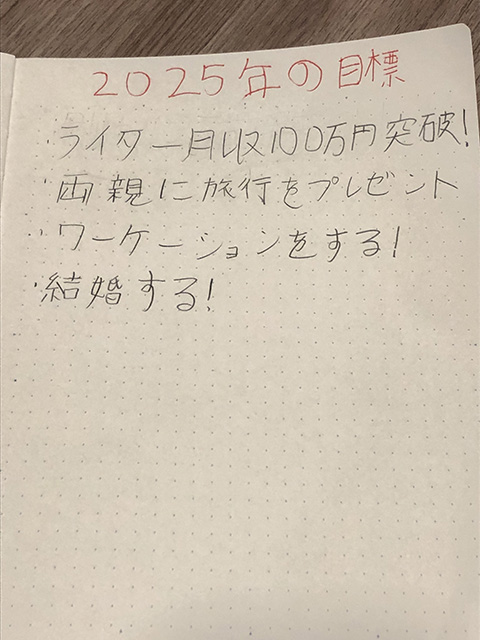 2025年の目標
・ライター月収100万円突破!
・両親に旅行をプレゼント
・ワーケーションをする!
・結婚する!